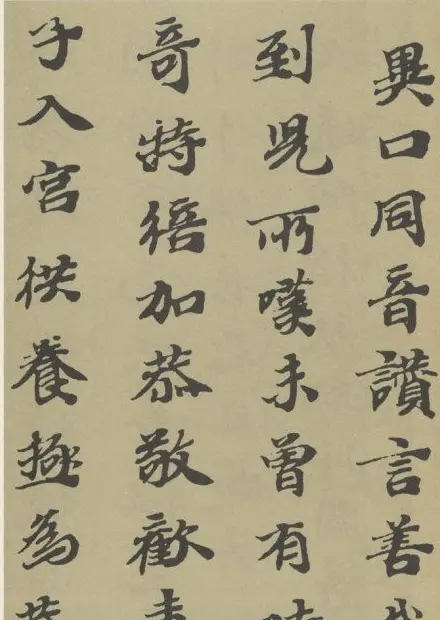 異口同音讃言善
到見所嘆未曾有
奇特倍加恭敬歡
子入宮供養極為